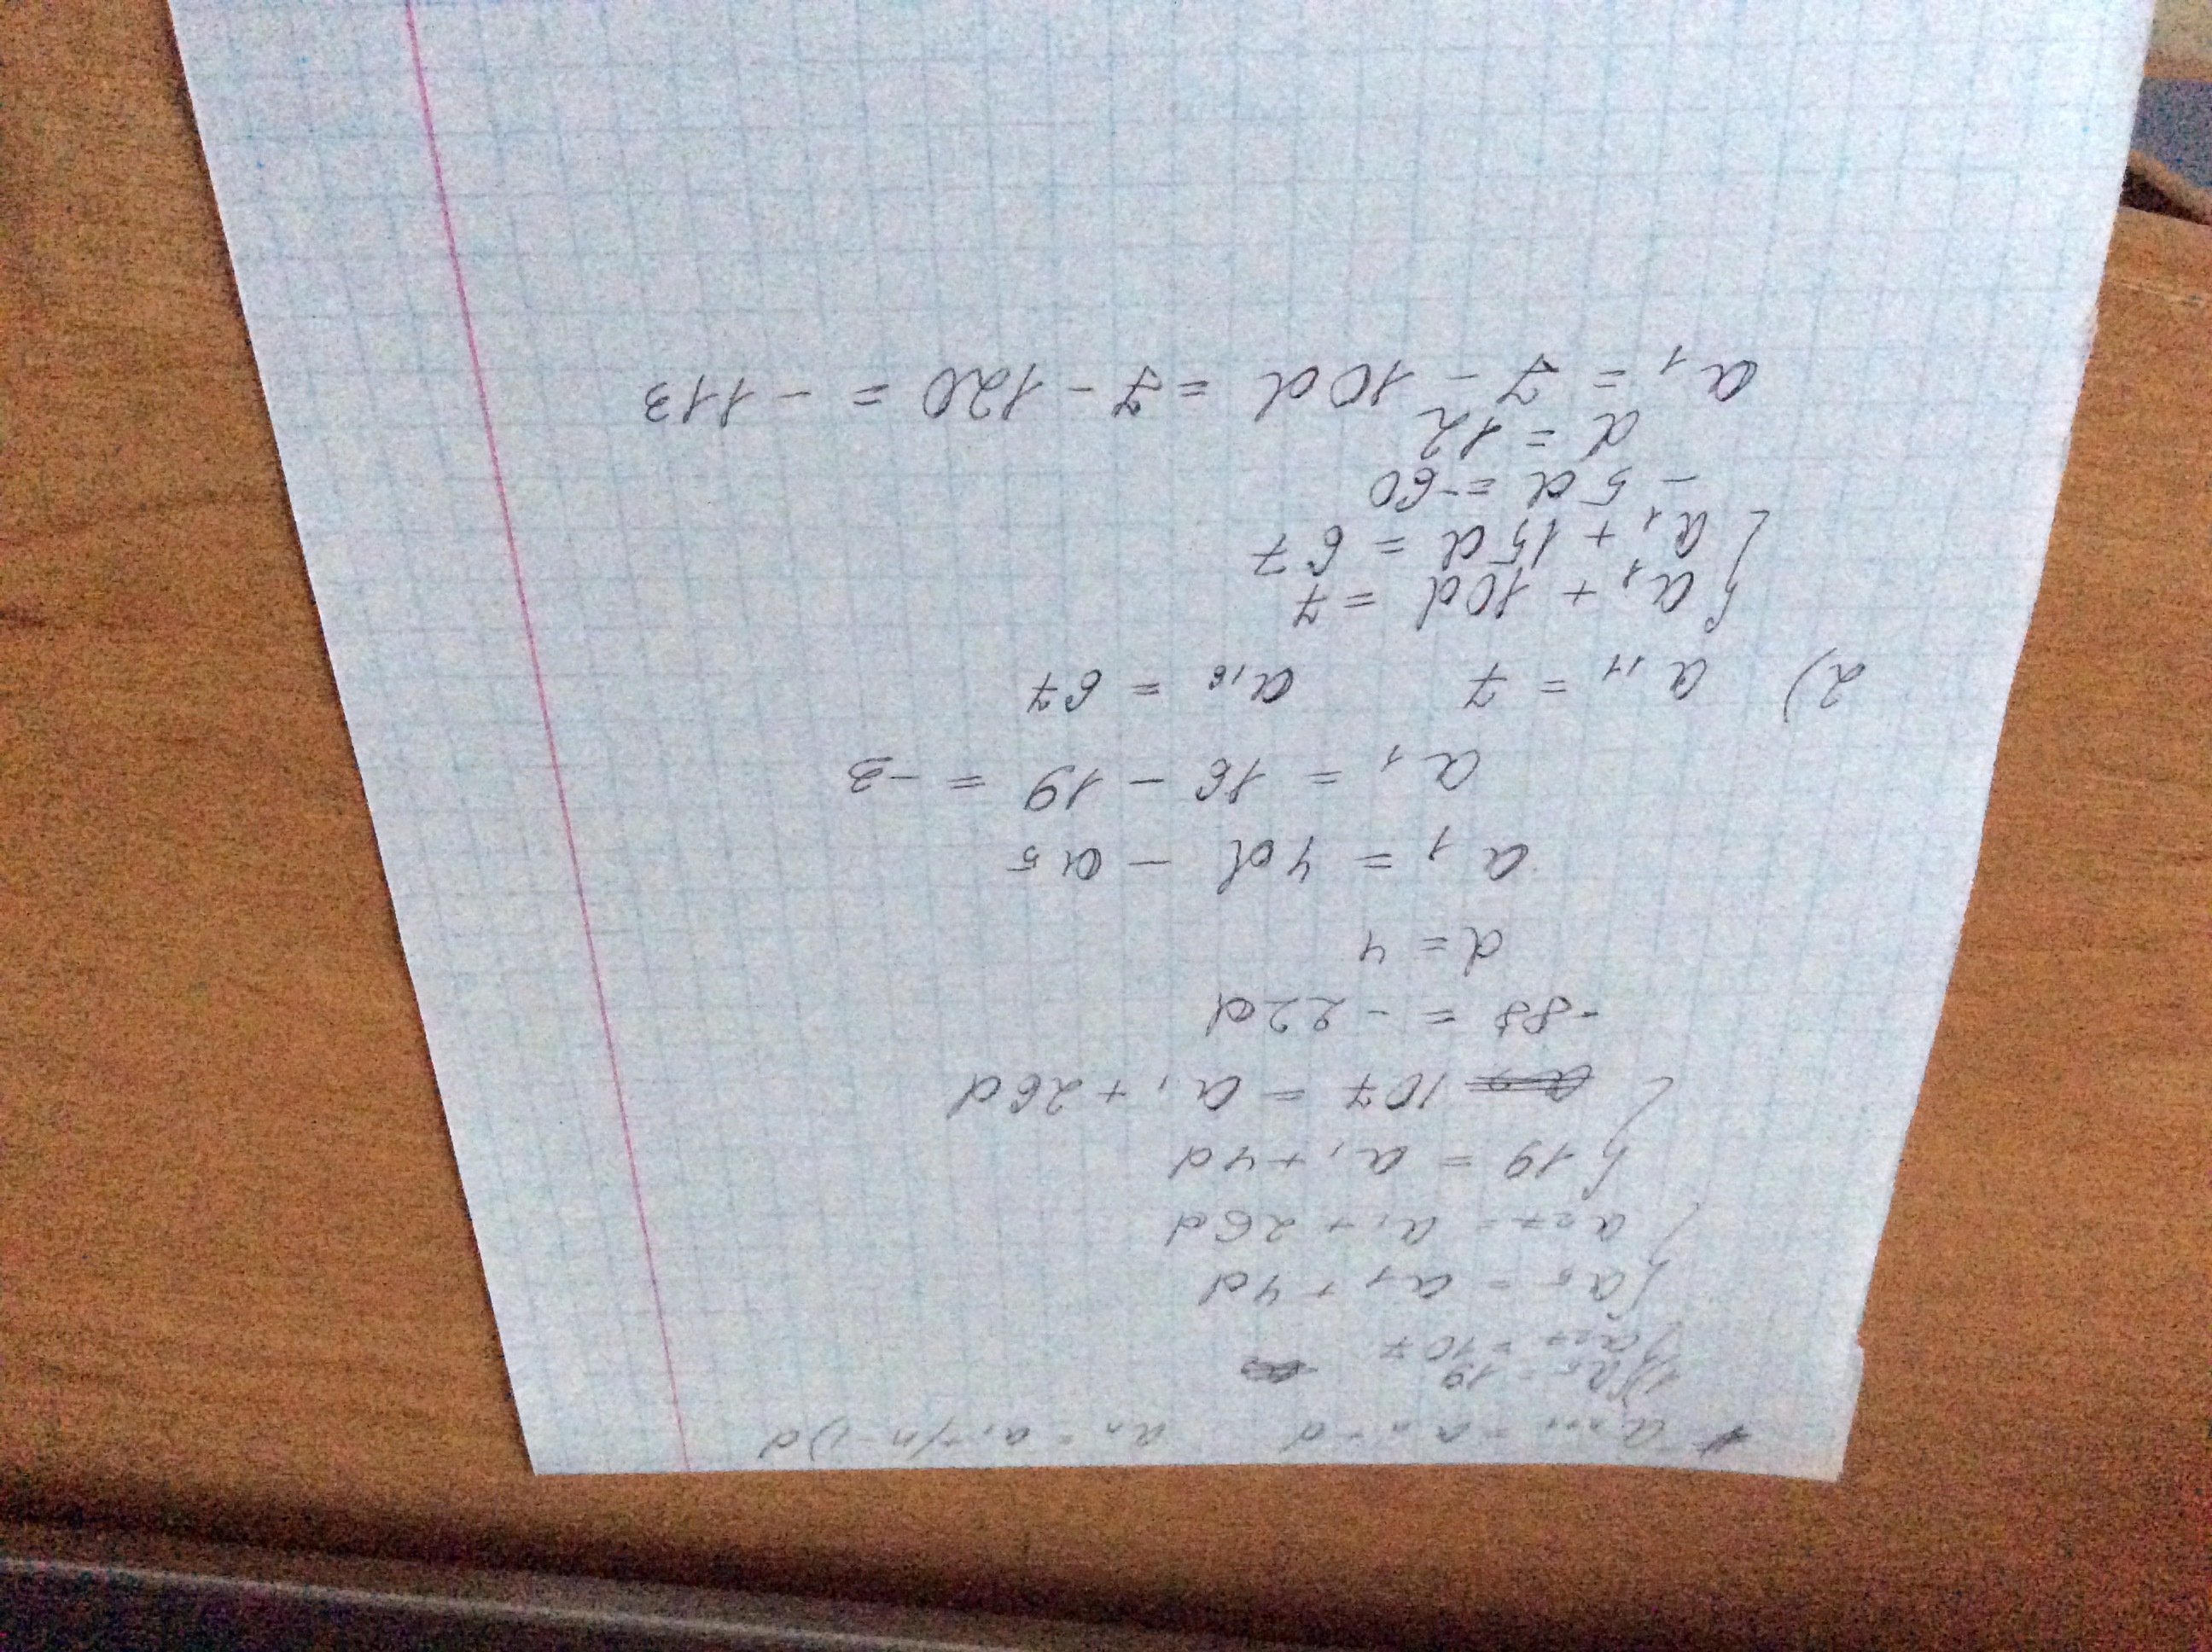 aₙ₊₁ = aₙ + d aₙ = a₁ + (n-1)d
1) { a₅ = 19
a₂₇ = 107
{ a₅ = a₁ + 4d
a₂₇ = a₁ + 26d
{ 19 = a₁ + 4d
107 = a₁ + 26d
-88 = -22d
d = 4
a₁ = 4d - a₅
a₁ = 16 - 19 = -3
2) a₁₁ = 7 a₁₆ = 67
{ a₁ + 10d = 7
a₁ + 15d = 67
-5d = -60
d = 12
a₁ = 7 - 10d = 7 - 120 = -113